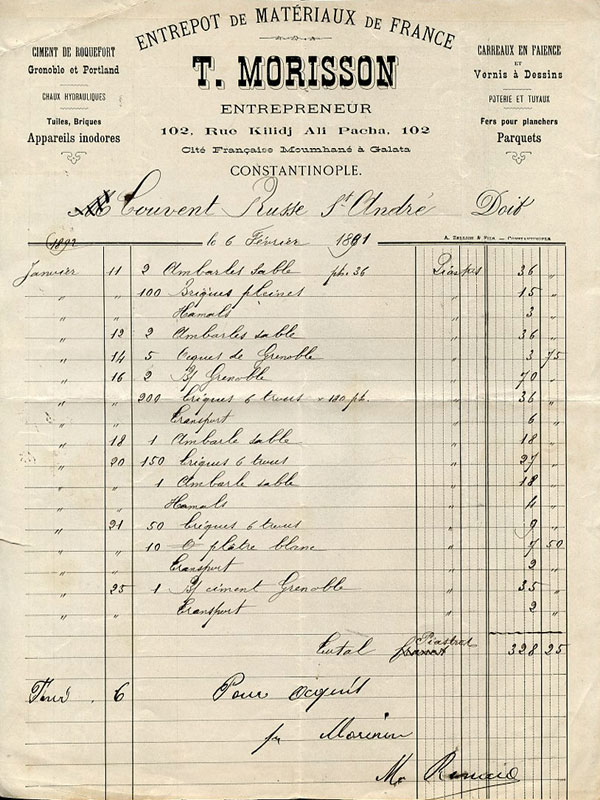 ENTREPOT DE MATÉRIAUX DE FRANCE
CIMENT DE ROQUEFORT
Grenoble et Portland
CHAUX HYDRAULIQUES
Tuiles, Briques
Appareils inodores
T. MORISSON
ENTREPRENEUR
102, Rue Kilidj Ali Pacha, 102
Cité Française Moumhané à Galata
CONSTANTINOPLE.
CARREAUX EN FAIENCE
ET
Vernis à Dessins
POTERIE ET TUYAUX
Fers pour planchers
Parquets
M Couvent Russe St André Doit
1892 le 6 Février 1891
A. ZELLICH & FILS — CONSTANTINOPLE
Janvier 11 2 Ambarles Sable 36 Piastres 36 "
" " 100 Briques pleines " 15 "
" " Hamals " 3 "
" 12 2 Ambarles sable " 36 "
" 14 5 Oques de Grenoble " 3 75
" 16 2 Grenoble " 70 "
" " 200 briques 6 trous 180 " 36 "
" " transport " 6 "
" 18 1 Ambarle sable " 18 "
" 20 150 briques 6 trous " 27 "
" " 1 Ambarle sable " 18 "
" " Hamals " 4 "
" 21 50 briques 6 trous " 9 "
" " 10 O plâtre blanc " 7 50
" " transport " 2 "
" 25 1 ciment Grenoble " 35 "
" " transport " 2 "
Total Piastres 328 25
6 Pour acquit